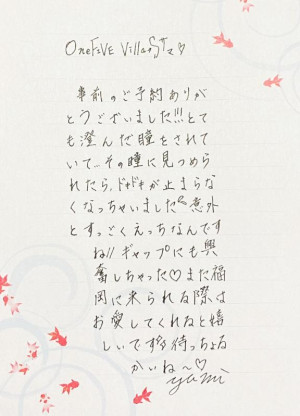 OneFiVE VillanSサマ♡
事前のご予約ありが
とうございました!!!とて
も澄んだ瞳をされて
いて、その瞳に見つめら
れたら、ドキドキが止まらな
くなっちゃいました 意外
とすっごくえっちなんです
ね!!ギャップにも興
奮しちゃった♡また福
岡に来られる際は
お愛してくれると嬉
しいです 待っちょる
かいね〜♡
yumi